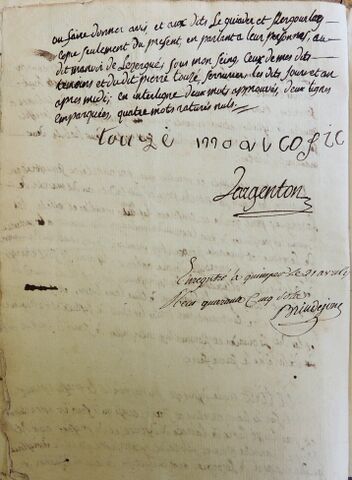 ou faire donner avis, et aux dits Le guiader et Pergour les
Copie seulement du present, en parlant a leur personnes, au
dit manoir de Lezergué, sous mon seing, Ceux de mes dits
temoins et du dit pierre touzé serrurier, les dits jour et an
apres midi; en interligne deux mots approuvés, deux lignes
embarquées, quatre mots raturés nuls.
touzé moal
Dargenton
Enregistré à quimper le avril
Recu quarante Cinq sols